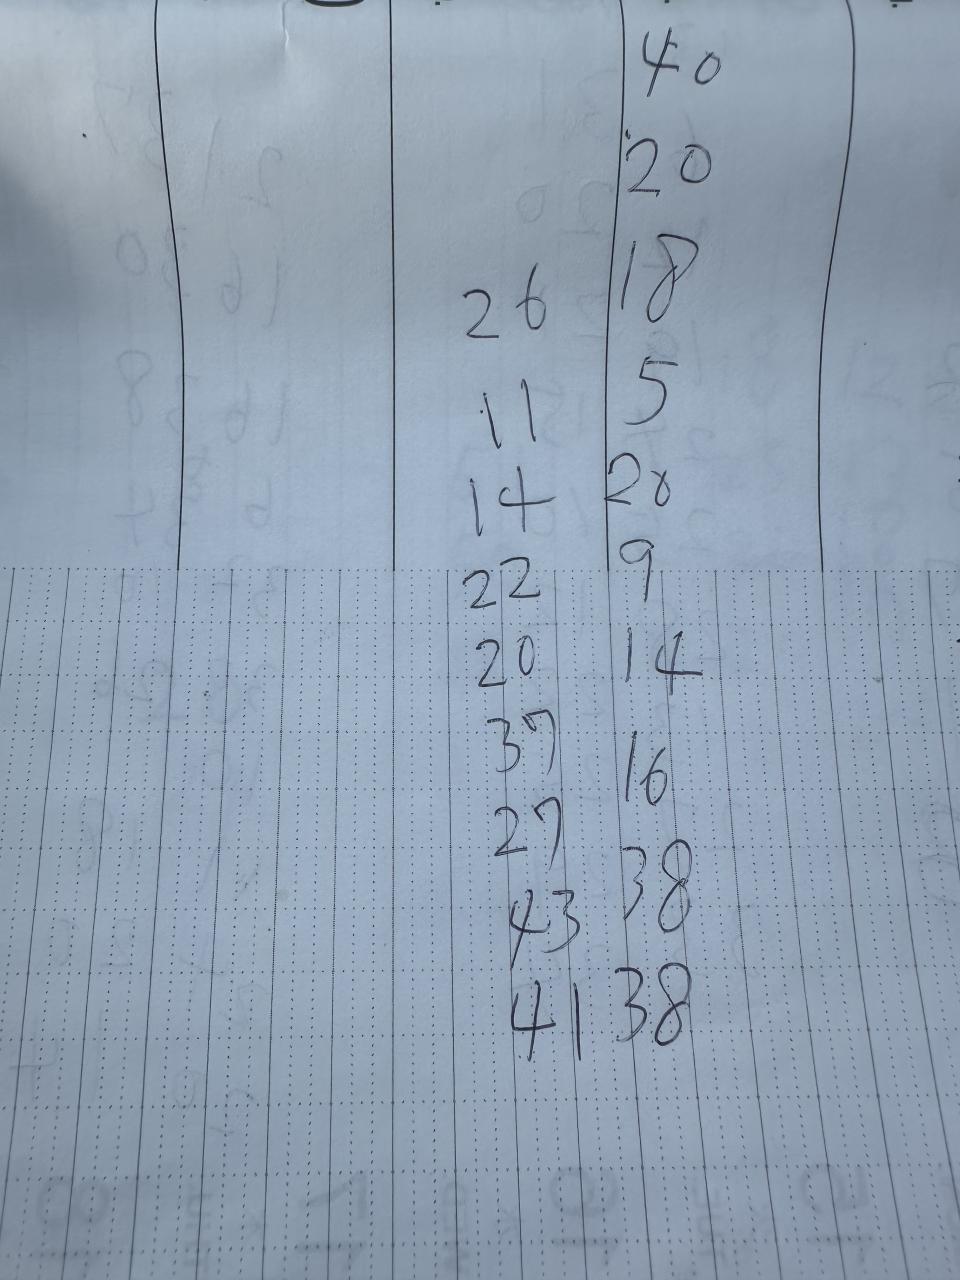 40
20
26 18
11 5
14 20
22 9
20 14
37 16
27 38
43 38
41